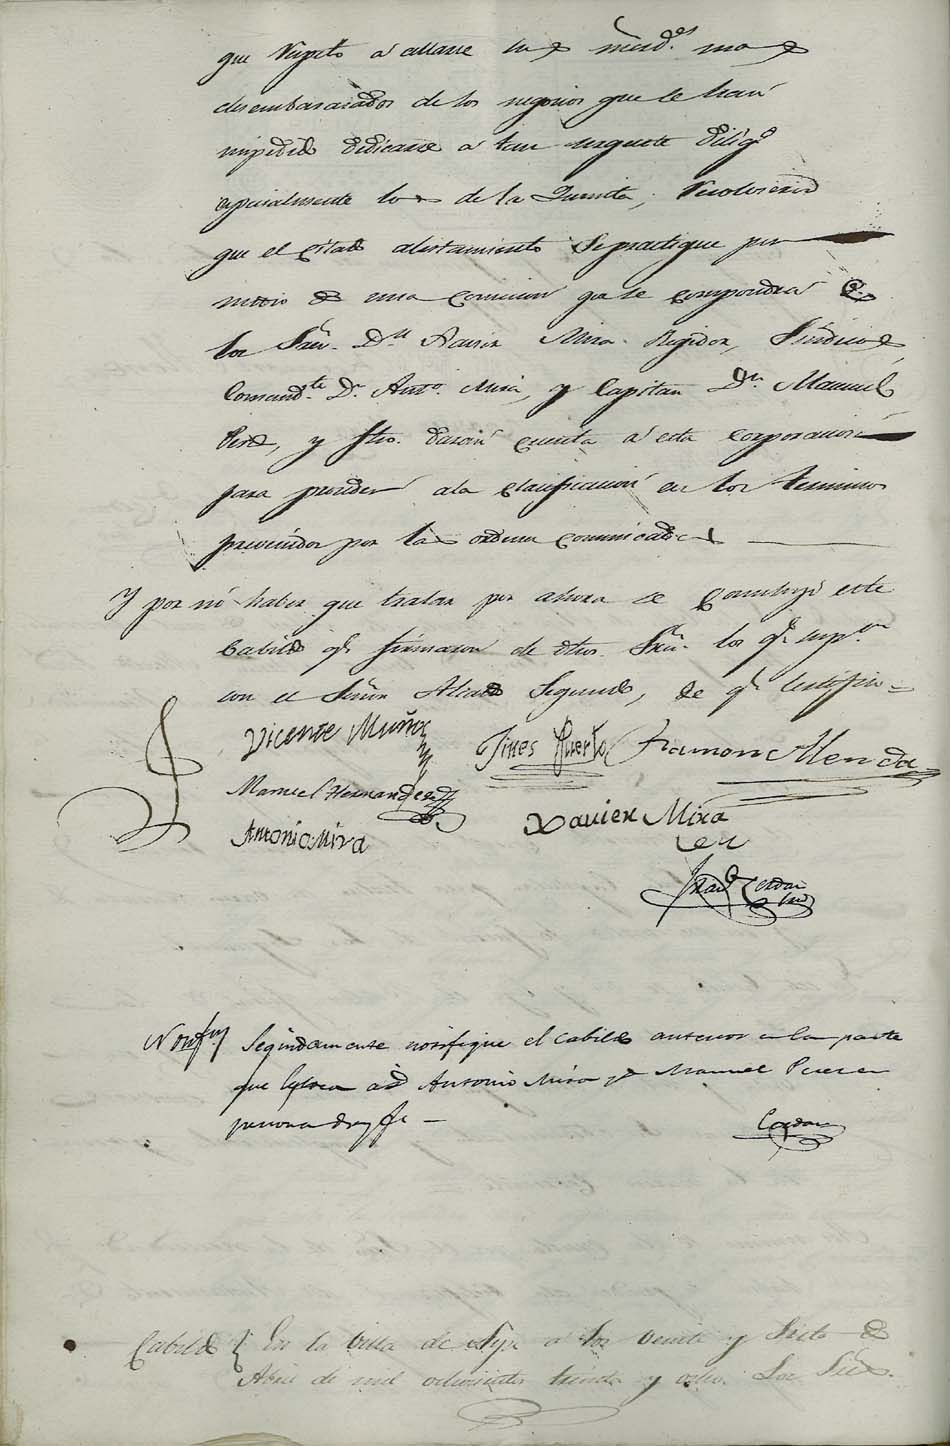 que respto. a allarse sus mrds. mas
desembarasados de los negocios que le han
impedido dedicarse a tan urgente dilig.ª
especialmente los de la Quinta, resolvieron
que el citado alistamiento se practique por
medio de una comicion que se compondrá de
los Sres. Dn. Xavier Mira Regidor, Sindico,
Comandte. Dn. Anto. Mira, y Capitan Dn. Manuel
Perez, y Strio. darán cuenta a esta corporacion
para proceder a la clasificacion en los terminos
prevenidos por las ordenes comunicadas
Y por nó haber que tratar por ahora se concluyó este
Cabildo qe. firmaron de dhos. Sres. los qe. supon.
con el Señor Alcalde Segundo, de qe. certifico =
Vicente Muñoz Jines Huerto Framon Mendez
Manuel Hernandez
Antonio Mira Xavier Mira
Cerdan
Notifon. Seguidamente notifique el cabildo anterior en la parte
que les toca a D. Antonio Mira y D. Manuel Perez en
persona doy fe
Cerdan
Cabildo En la Villa de a los veinte y siete de
Abril de mil ochocientos treinta y ocho. Los Sres.